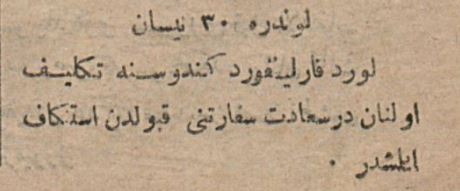 لوندره ٣٠ نيسان
لورد فارلينفورد كندوسنه تكليف
اولنان درسعادت سفارتنى قبولدن استنكاف
ايلمشدر ٠